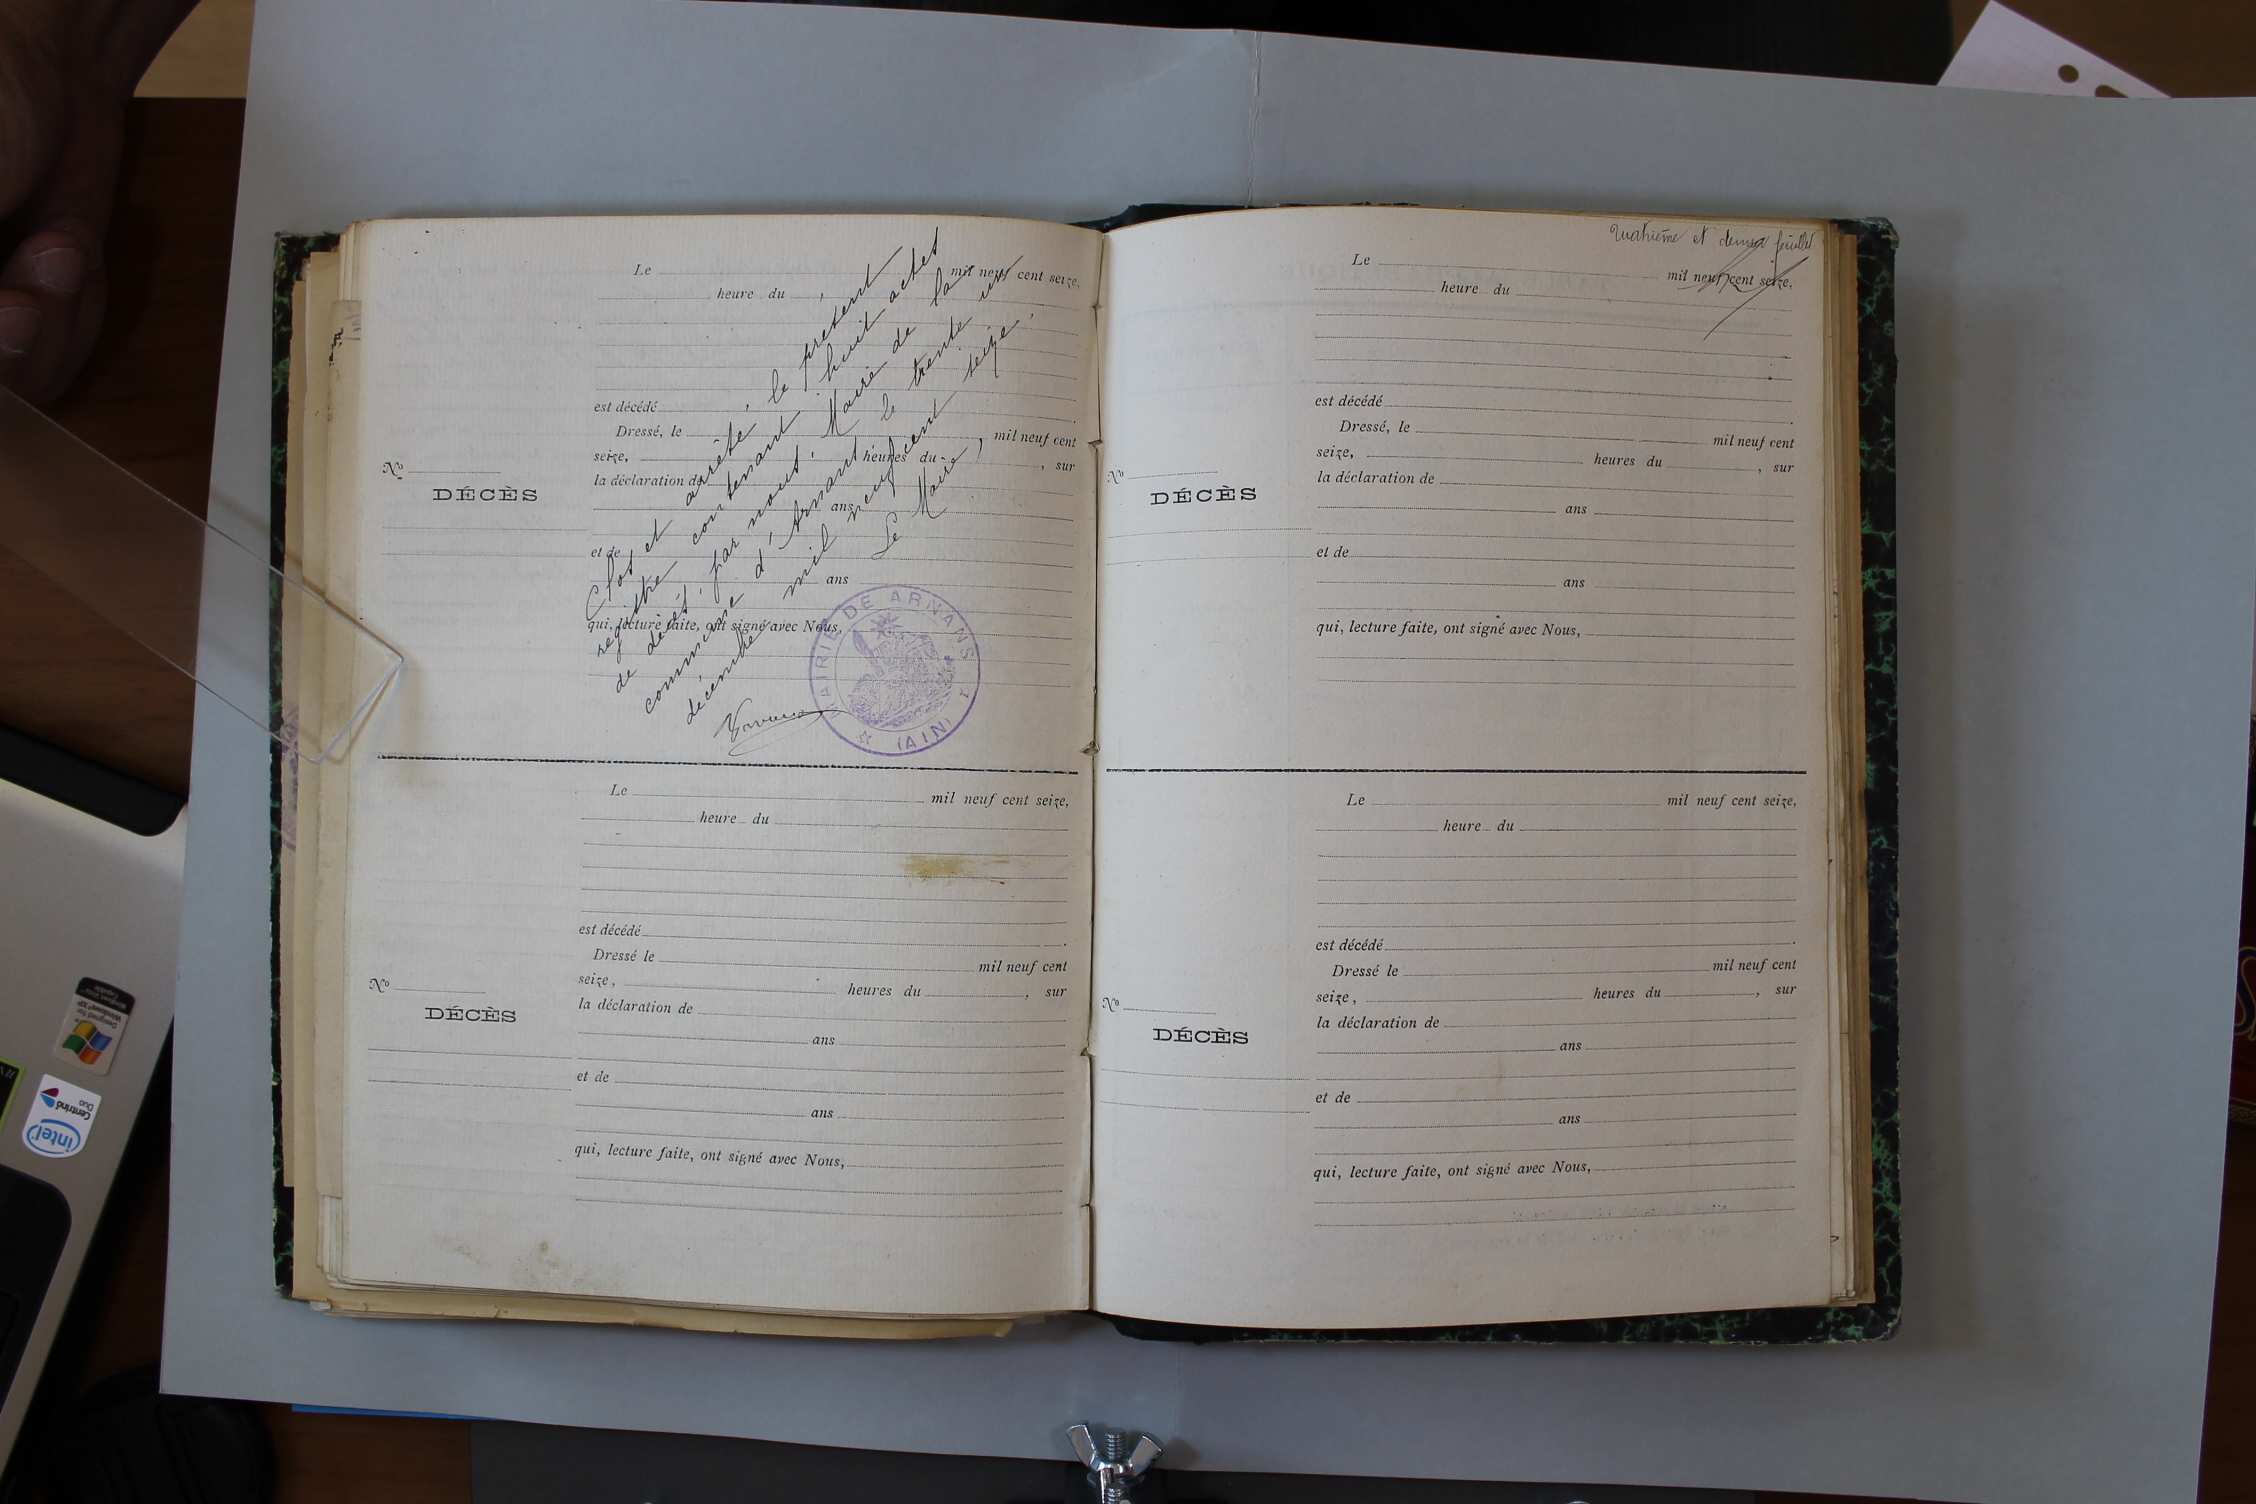 Le mil neuf cent seize,
heure du
est décédé
Dressé, le mil neuf cent
seize, heures du , sur
la déclaration de
ans
et de
ans
qui, lecture faite, ont signé avec Nous,
No
DÉCÈS
Clos et arrêté, le présent
registre contenant huit actes
de décès, par nous, Maire de la
commune d'Arnans le trente un
décembre mil neuf cent seize.
Le Maire,
MAIRIE DE ARNANS
(AIN)
Le mil neuf cent seize,
heure du
est décédé
Dressé le mil neuf cent
seize, heures du , sur
la déclaration de
ans
et de
ans
qui, lecture faite, ont signé avec Nous,
No
DÉCÈS
Quatrième et dernier feuillet
Le mil neuf cent seize,
heure du
est décédé
Dressé, le mil neuf cent
seize, heures du , sur
la déclaration de
ans
et de
ans
qui, lecture faite, ont signé avec Nous,
No
DÉCÈS
Le mil neuf cent seize,
heure du
est décédé
Dressé le mil neuf cent
seize, heures du , sur
la déclaration de
ans
et de
ans
qui, lecture faite, ont signé avec Nous,
No
DÉCÈS
Designed for
Windows XP
Centrino
Duo
intel